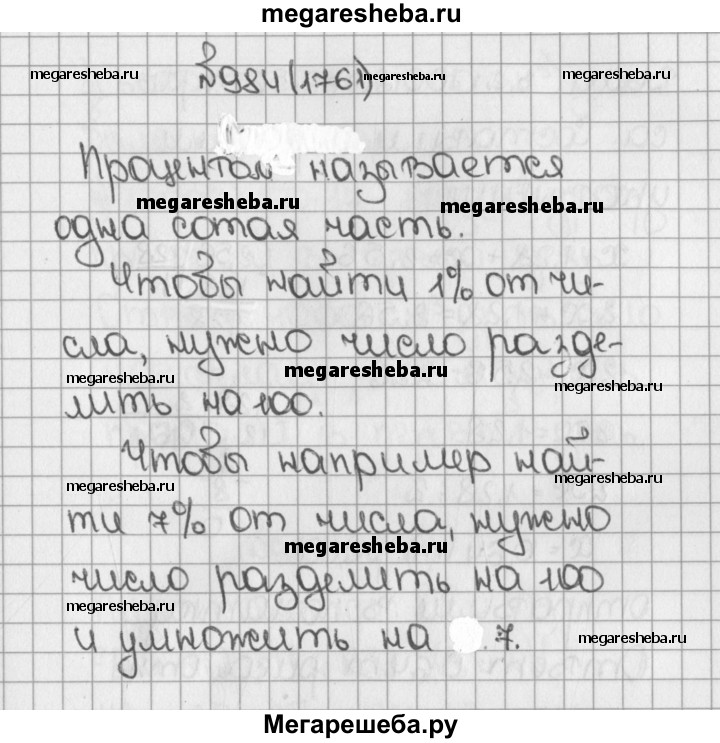 megaresheba.ru
№984(1761)
megaresheba.ru megaresheba.ru megaresheba.ru
Процентом называется
megaresheba.ru megaresheba.ru
одна сотая часть.
Чтобы найти 1% от чи-
сла, нужно число разде-
megaresheba.ru megaresheba.ru megaresheba.ru
лить на 100.
Чтобы например най-
megaresheba.ru megaresheba.ru
ти 7% от числа, нужно
megaresheba.ru
число разделить на 100
megaresheba.ru megaresheba.ru
и умножить на 7.
Мегарешеба.ру